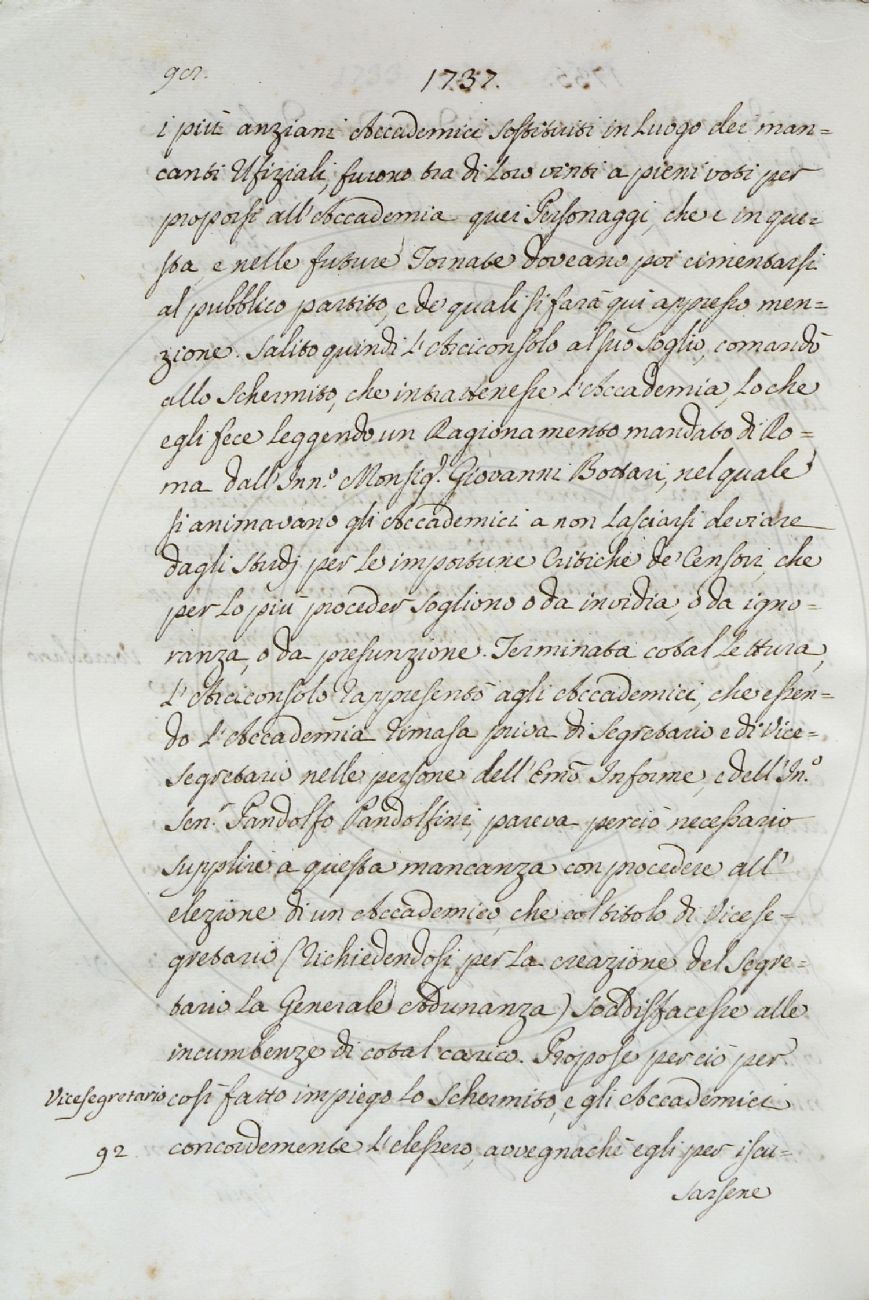 902.
1737.
i più anziani Accademici sostituiti in luogo dei man=
canti Ufiziali, furono tra di loro vinti a pieni voti per
proporsi all'Accademia quei Personaggi, che e in que=
sta, e nelle future Tornate doveano poi cimentarsi
al pubblico partito, e de' quali si farà quì appresso men=
zione. Salito quindi l'Arciconsolo al suo soglio, comandò
allo Schermito, che intrattenesse l'Accademia, lo che
egli fece leggendo un Ragionamento mandato di Ro=
ma dall'Inn.º Monsig.r Giovanni Bottari, nel quale
si animavano gli Accademici a non lasciarsi deviare
dagli studj per le importune Critiche de' Censori, che
per lo più proceder sogliono o da invidia, o da igno=
ranza, o da presunzione. Terminata cotal lettura,
l'Arciconsolo rappresentò agli Accademici, che essen=
do l'Accademia rimasa priva di Segretario e di Vice=
segretario nelle persone dell'Emo Informe, e dell'In.º
Sen.r Pandolfo Pandolfini, pareva perciò necessario
supplire a questa mancanza con procedere all'
elezione di un Accademico, che col titolo di Vicese=
gretario (richiedendosi per la creazione del Segre=
tario la Generale Adunanza) soddisfacesse alle
incumbenze di cotal carico. Propose perciò per
Vicesegretario così fatto impiego lo Schermito, e gli Accademici
92 concordemente l'elessero, avvegnachè egli per iscu=
sarsene